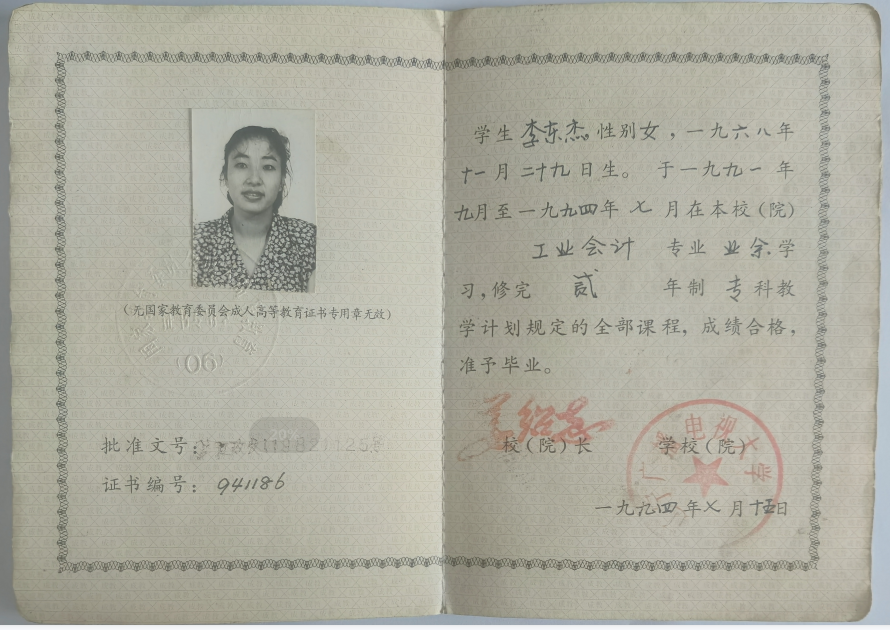 (无国家教育委员会成人高等教育证书专用章无效)
(06)
批准文号:
证书编号: 941186
学生 李东杰 性别女,一九六八年
十一月二十九日生。 于一九九一年
九月至一九九四年 七 月在本校(院)
工业会计 专业 业余 学
习,修完 贰 年制 专科教
学计划规定的全部课程,成绩合格,
准予毕业。
校(院)长 学校(院)
广播电视大学
一九九四年七月十五日